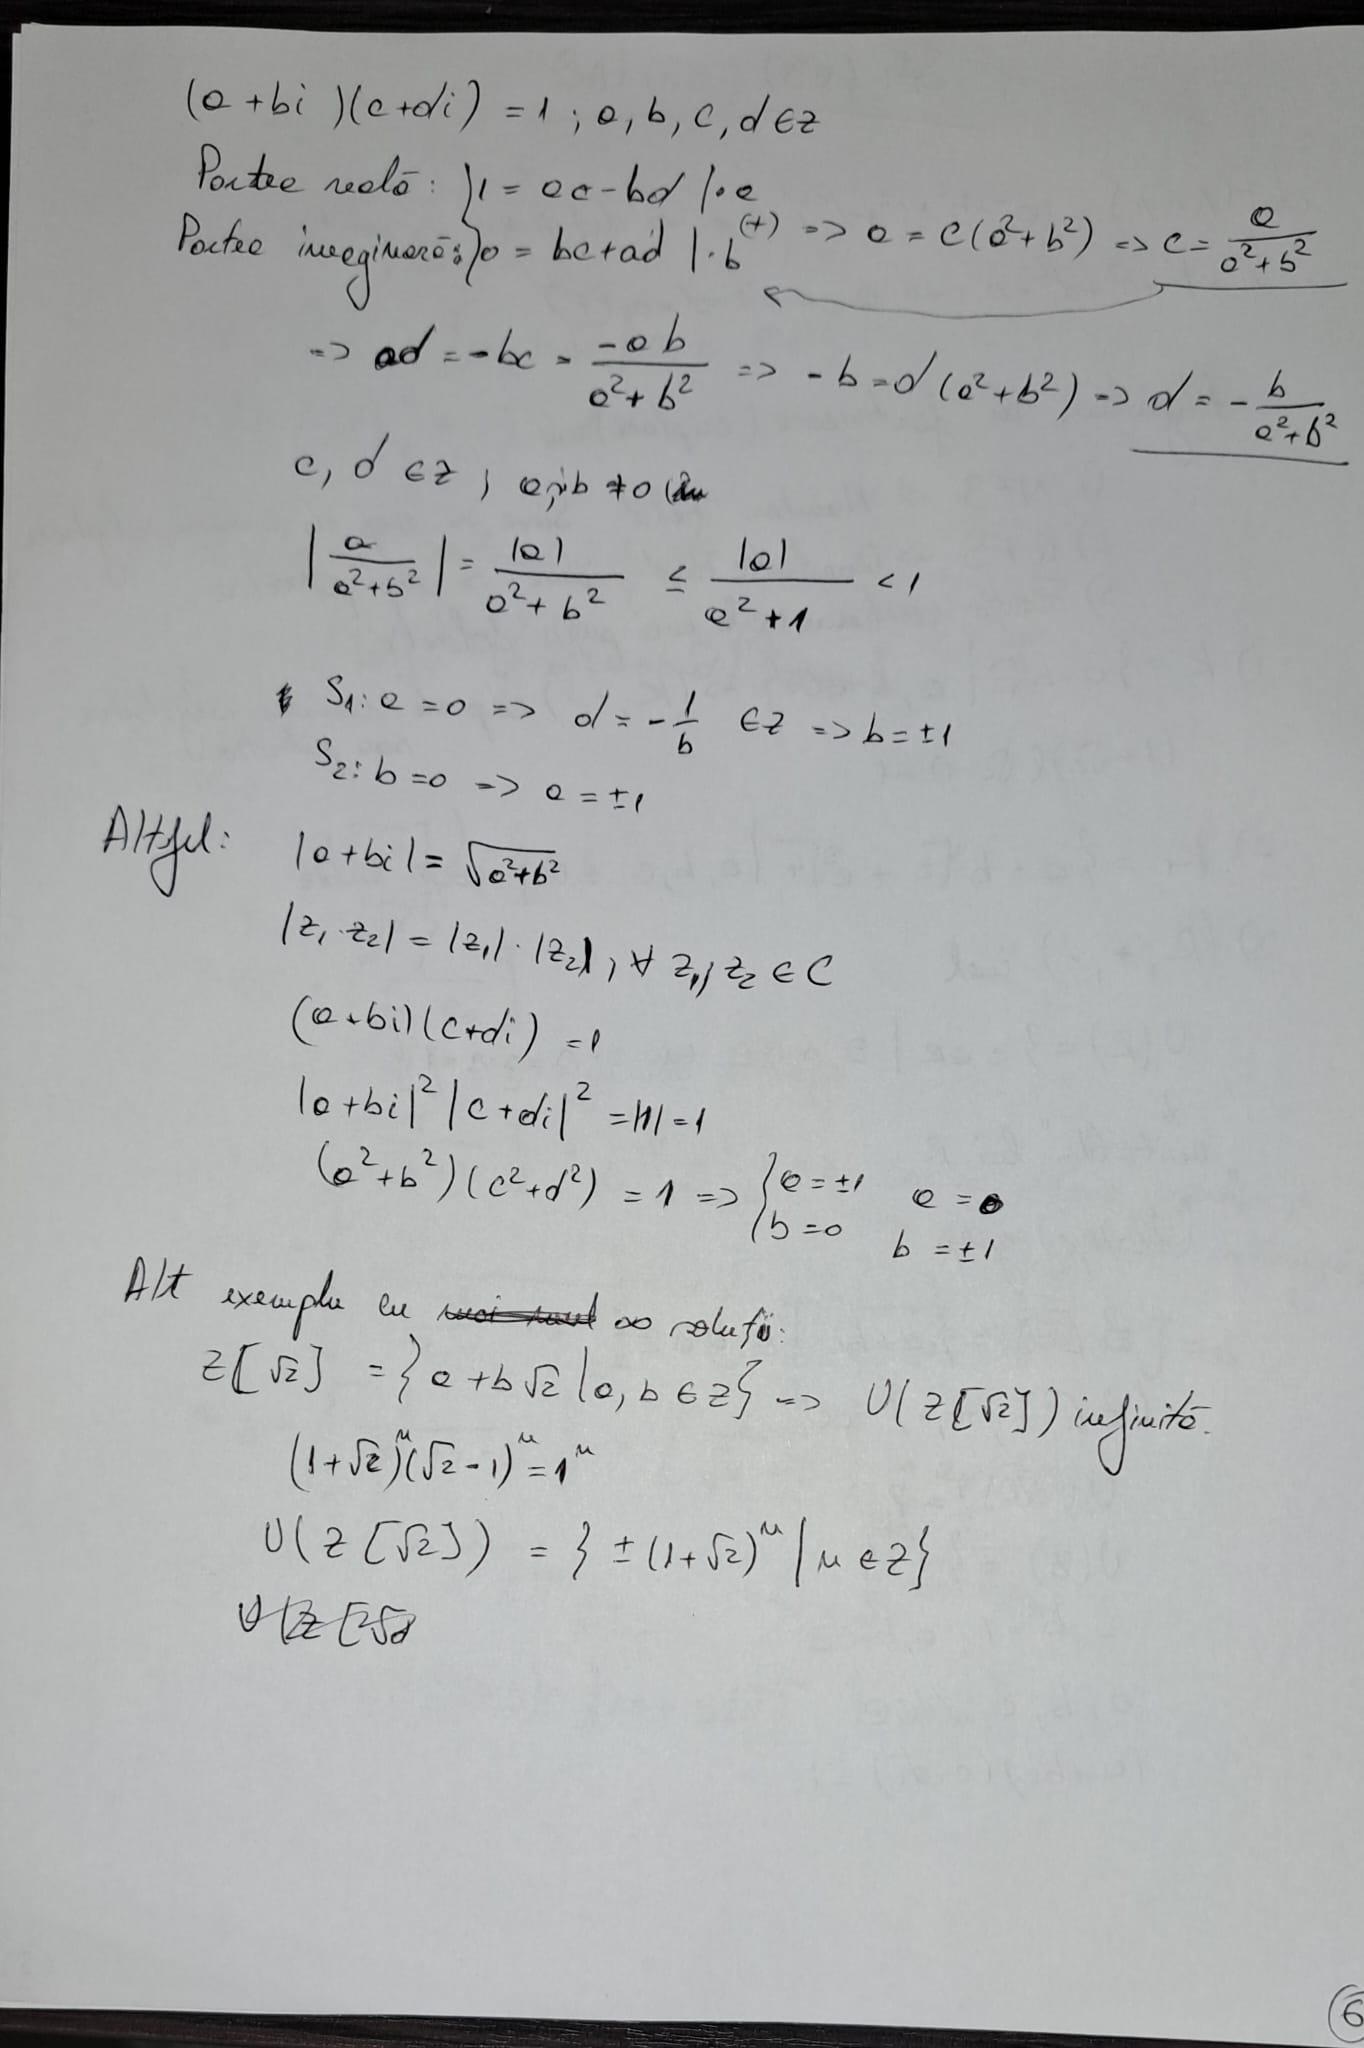 (a+bi)(c+di) = 1 ; a, b, c, d ∈ Z
Partea reală : { 1 = ac-bd |·a
Partea imaginară : { 0 = bc+ad |·b (+) => a = c(a²+b²) => c = a/(a²+b²)
=> ad = -bc = -ab/(a²+b²) => -b = d(a²+b²) => d = - b/(a²+b²)
c, d ∈ Z ; a, b ≠ 0
|a/(a²+b²)| = |a|/(a²+b²) ≤ |a|/(a²+1) < 1
S₁: a = 0 => d = - 1/b ∈ Z => b = ±1
S₂: b = 0 => a = ±1
Altfel: |a+bi| = √(a²+b²)
|z₁·z₂| = |z₁|·|z₂|, ∀ z₁, z₂ ∈ C
(a+bi)(c+di) = 1
|a+bi|² |c+di|² = |1| = 1
(a²+b²)(c²+d²) = 1 => { a = ±1 a = 0
{ b = 0 b = ±1
Alt exemplu cu ∞ soluții:
Z[√2] = {a+b√2 | a, b ∈ Z} => U(Z[√2]) infinită.
(1+√2)ⁿ(√2-1)ⁿ = 1ⁿ
U(Z[√2]) = {±(1+√2)ⁿ | n ∈ Z}
U(Z[√2
6